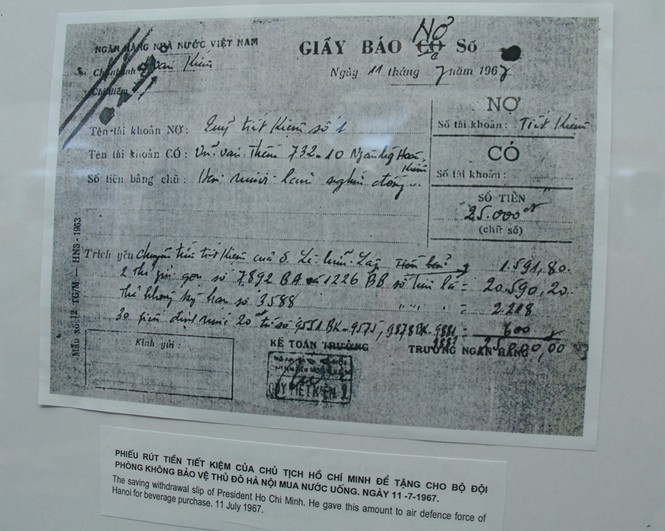 NGÂN HÀNG NHÀ NƯỚC VIỆT NAM
GIẤY BÁO CÓ Số
NỢ
Chi nhánh
Chi điếm
Ngày 11 tháng 7 năm 1967
NỢ
Số tài khoản: Tiết Kiệm
Tên tài khoản NỢ: Quỹ tiết Kiệm số 1
Tên tài khoản CÓ: 732-10
CÓ
Số tài khoản:
Số tiền bằng chữ: Hai mươi lăm nghìn đồng
SỐ TIỀN
25.000đ
(chữ số)
Mẫu số 12 TG/M — HNS - 1963
Trích yếu chuyển tiền tiết Kiệm của 1.591,80
2 thẻ gửi gọn số 7892 BA 1226 BB số tiền là = 20.590,20
Thẻ không kỳ hạn số 3588 2.218
30 định mức 20đ từ số 600
25.000,00
Kính gửi:
KẾ TOÁN TRƯỞNG
TRƯỞNG NGÂN HÀNG
QUỸ TIẾT KIỆM
PHIẾU RÚT TIỀN TIẾT KIỆM CỦA CHỦ TỊCH HỒ CHÍ MINH ĐỂ TẶNG CHO BỘ ĐỘI
PHÒNG KHÔNG BẢO VỆ THỦ ĐÔ HÀ NỘI MUA NƯỚC UỐNG. NGÀY 11 -7-1967.
The saving withdrawal slip of President Ho Chi Minh. He gave this amount to air defence force of
Hanoi for beverage purchase. 11 July 1967.